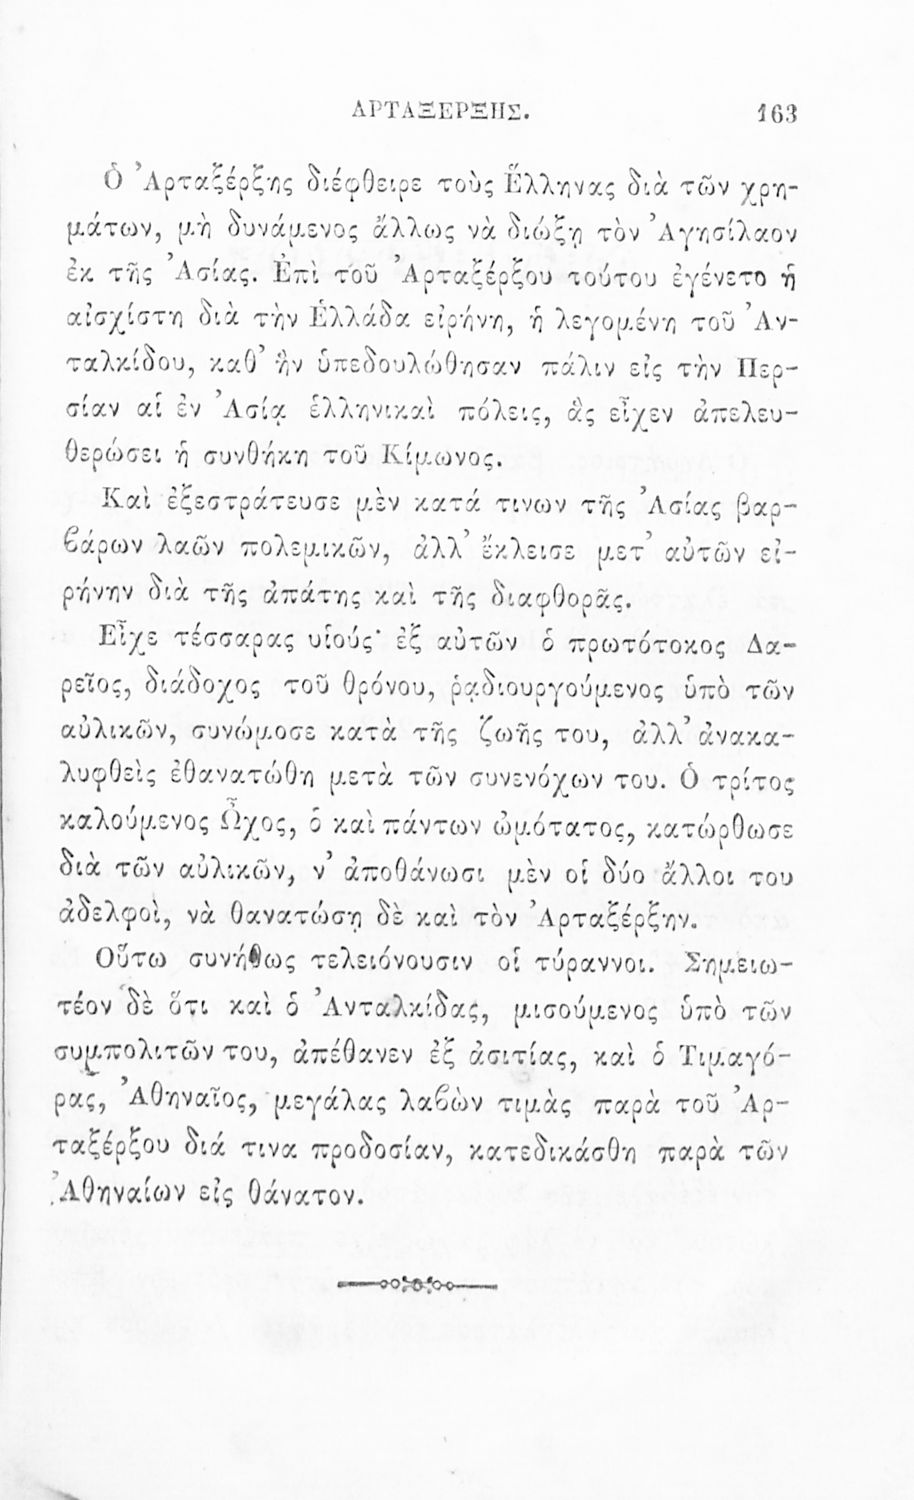 ΑΡΤΑΞΕΡΞΗΣ. 163
Ὁ Ἀρταξέρξης διέφθειρε τοὺς Ἕλληνας διὰ τῶν χρη-
μάτων, μὴ δυνάμενος ἄλλως νὰ διώξῃ τὸν Ἀγησίλαον
ἐκ τῆς Ἀσίας. Ἐπὶ τοῦ Ἀρταξέρξου τούτου ἐγένετο ἡ
αἰσχίστη διὰ τὴν Ἑλλάδα εἰρήνη, ἡ λεγομένη τοῦ Ἀν-
ταλκίδου, καθ’ ἣν ὑπεδουλώθησαν πάλιν εἰς τὴν Περ-
σίαν αἱ ἐν Ἀσίᾳ ἑλληνικαὶ πόλεις, ἃς εἶχεν ἀπελευ-
θερώσει ἡ συνθήκη τοῦ Κίμωνος.
Καὶ ἐξεστράτευσε μὲν κατά τινων τῆς Ἀσίας βαρ-
ϐάρων λαῶν πολεμικῶν, ἀλλ’ ἔκλεισε μετ’ αὐτῶν εἰ-
ρήνην διὰ τῆς ἀπάτης καὶ τῆς διαφθορᾶς.
Εἶχε τέσσαρας υἱούς· ἐξ αὐτῶν ὁ πρωτότοκος Δα-
ρεῖος, διάδοχος τοῦ θρόνου, ῥᾳδιουργούμενος ὑπὸ τῶν
αὐλικῶν, συνώμοσε κατὰ τῆς ζωῆς του, ἀλλ’ ἀνακα-
λυφθεὶς ἐθανατώθη μετὰ τῶν συνενόχων του. Ὁ τρίτος
καλούμενος Ὦχος, ὁ καὶ πάντων ὠμότατος, κατώρθωσε
διὰ τῶν αὐλικῶν, ν’ ἀποθάνωσι μὲν οἱ δύο ἄλλοι του
ἀδελφοὶ, νὰ θανατώσῃ δὲ καὶ τὸν Ἀρταξέρξην.
Οὕτω συνήθως τελειόνουσιν οἱ τύραννοι. Σημειω-
τέον δὲ ὅτι καὶ ὁ Ἀνταλκίδας, μισούμενος ὑπὸ τῶν
συμπολιτῶν του, ἀπέθανεν ἐξ ἀσιτίας, καὶ ὁ Τιμαγό-
ρας, Ἀθηναῖος, μεγάλας λαϐὼν τιμὰς παρὰ τοῦ Ἀρ-
ταξέρξου διά τινα προδοσίαν, κατεδικάσθη παρὰ τῶν
Ἀθηναίων εἰς θάνατον.